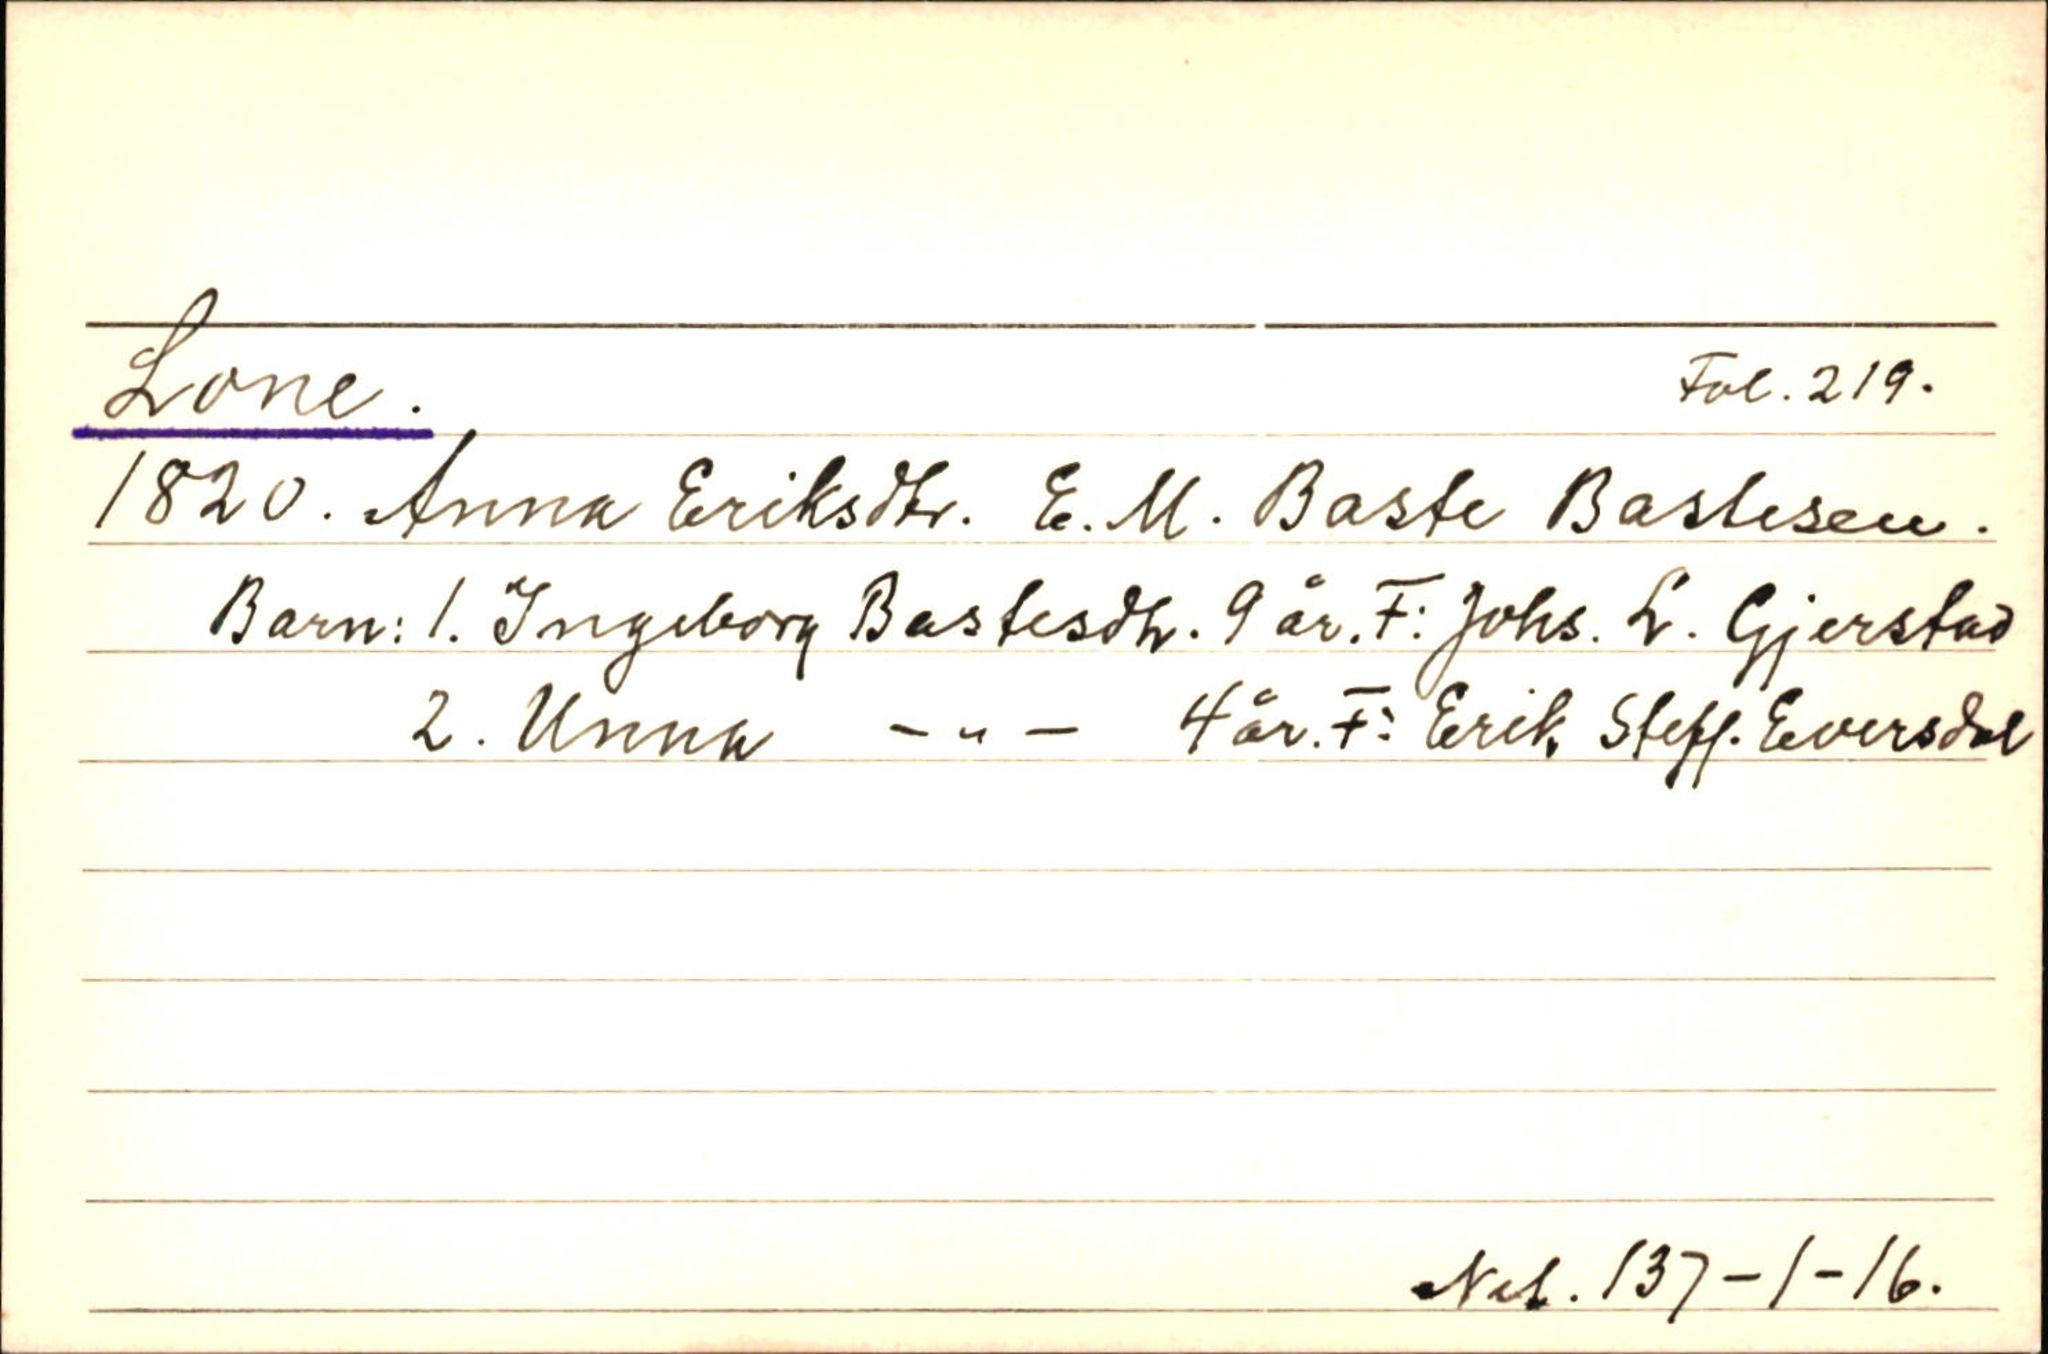 Lone. Fol. 219.
1820. Anna Eriksdtr. E. M. Baste Bastesen.
Barn: 1. Ingeborg Bastesdtr. 9 år. F: Johs. L. Gjerstad
2. Unna - " - 4 år. F: Erik Steff. Eversdal
Neb. 137-1-16.